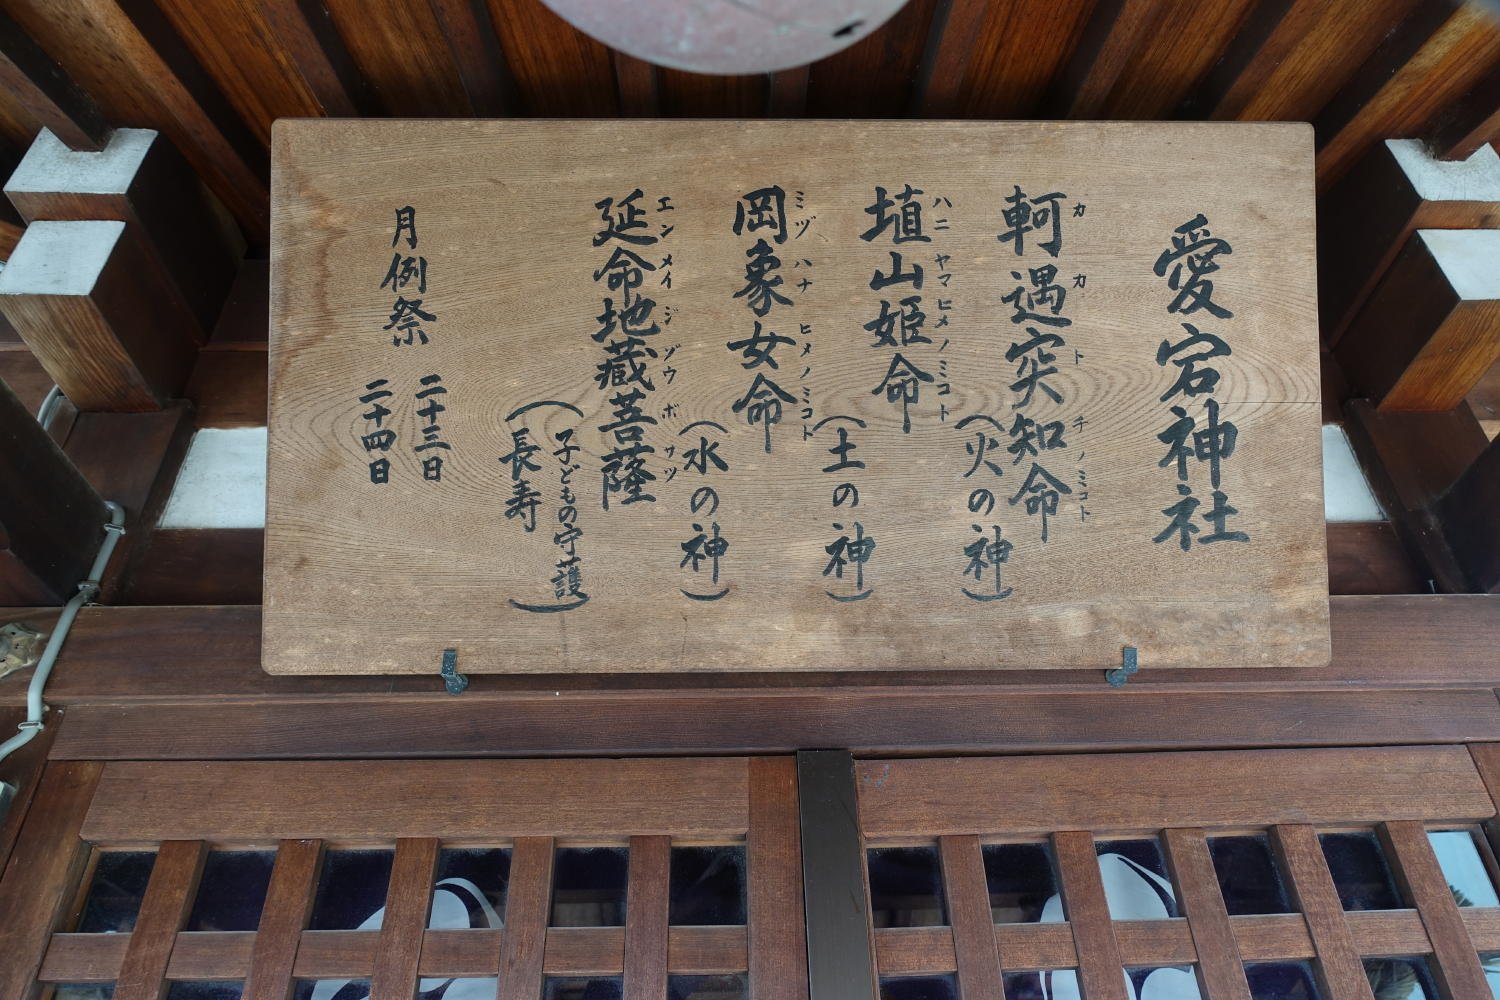 愛宕神社
軻遇突知命
カカトチノミコト
(火の神)
埴山姫命
ハニヤマヒメノミコト
(土の神)
岡象女命
ミヅハナヒメノミコト
(水の神)
延命地蔵菩薩
エンメイジゾウボサツ
(子どもの守護
長寿)
月例祭
二十三日
二十四日